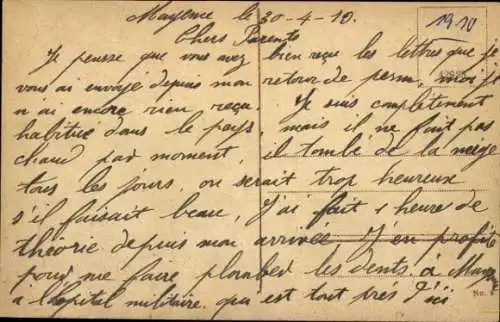 Mayence le 30-4-10.
1910
Chers Parents
Je pense que vous avez bien reçue les lettres que je
vous ai envoyé depuis mon retour de perm, moi je
n'ai encore rien reçu. Je suis complètement
habitué dans le pays, mais il ne fait pas
chaud par moment, il tombé de la neige
tous les jours, on serait trop heureux
s'il faisait beau, J'ai fait 1 heure de
théorie depuis mon arrivée, J'en profite
pour me faire plomber les dents. à
a l'hopital militaire. qui est tout près d'ici
No.